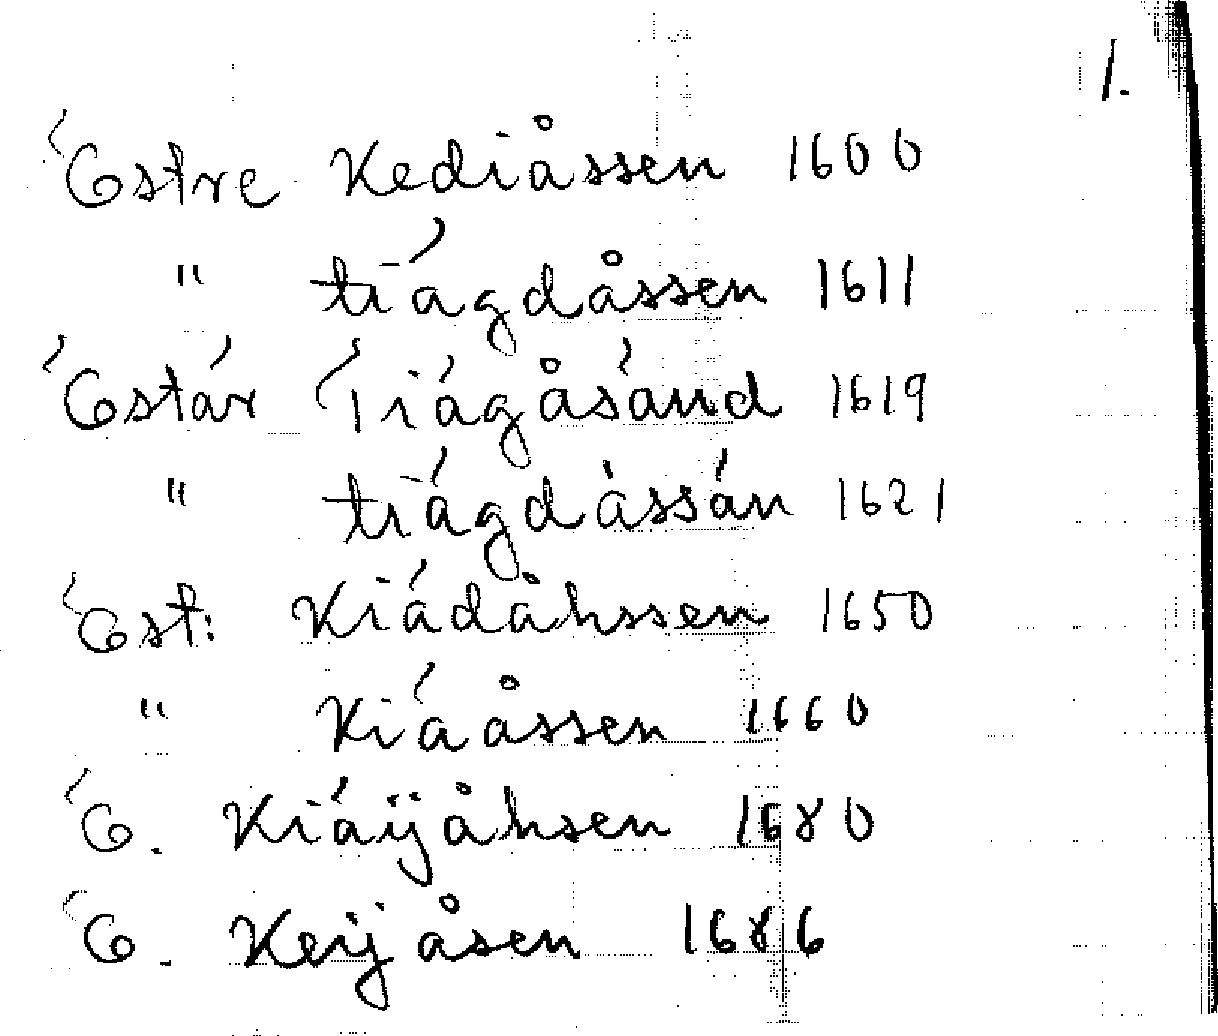 1.
Östre Kediåssen 1600
" tiágdåssen 1611
Östár Tiágåsánd 1619
" tiágdássán 1621
Öst: Kiádåhssen 1650
" Kiáåssen 1660
Ö. Kiáijåhsen 1680
Ö. Keijåsen 1686